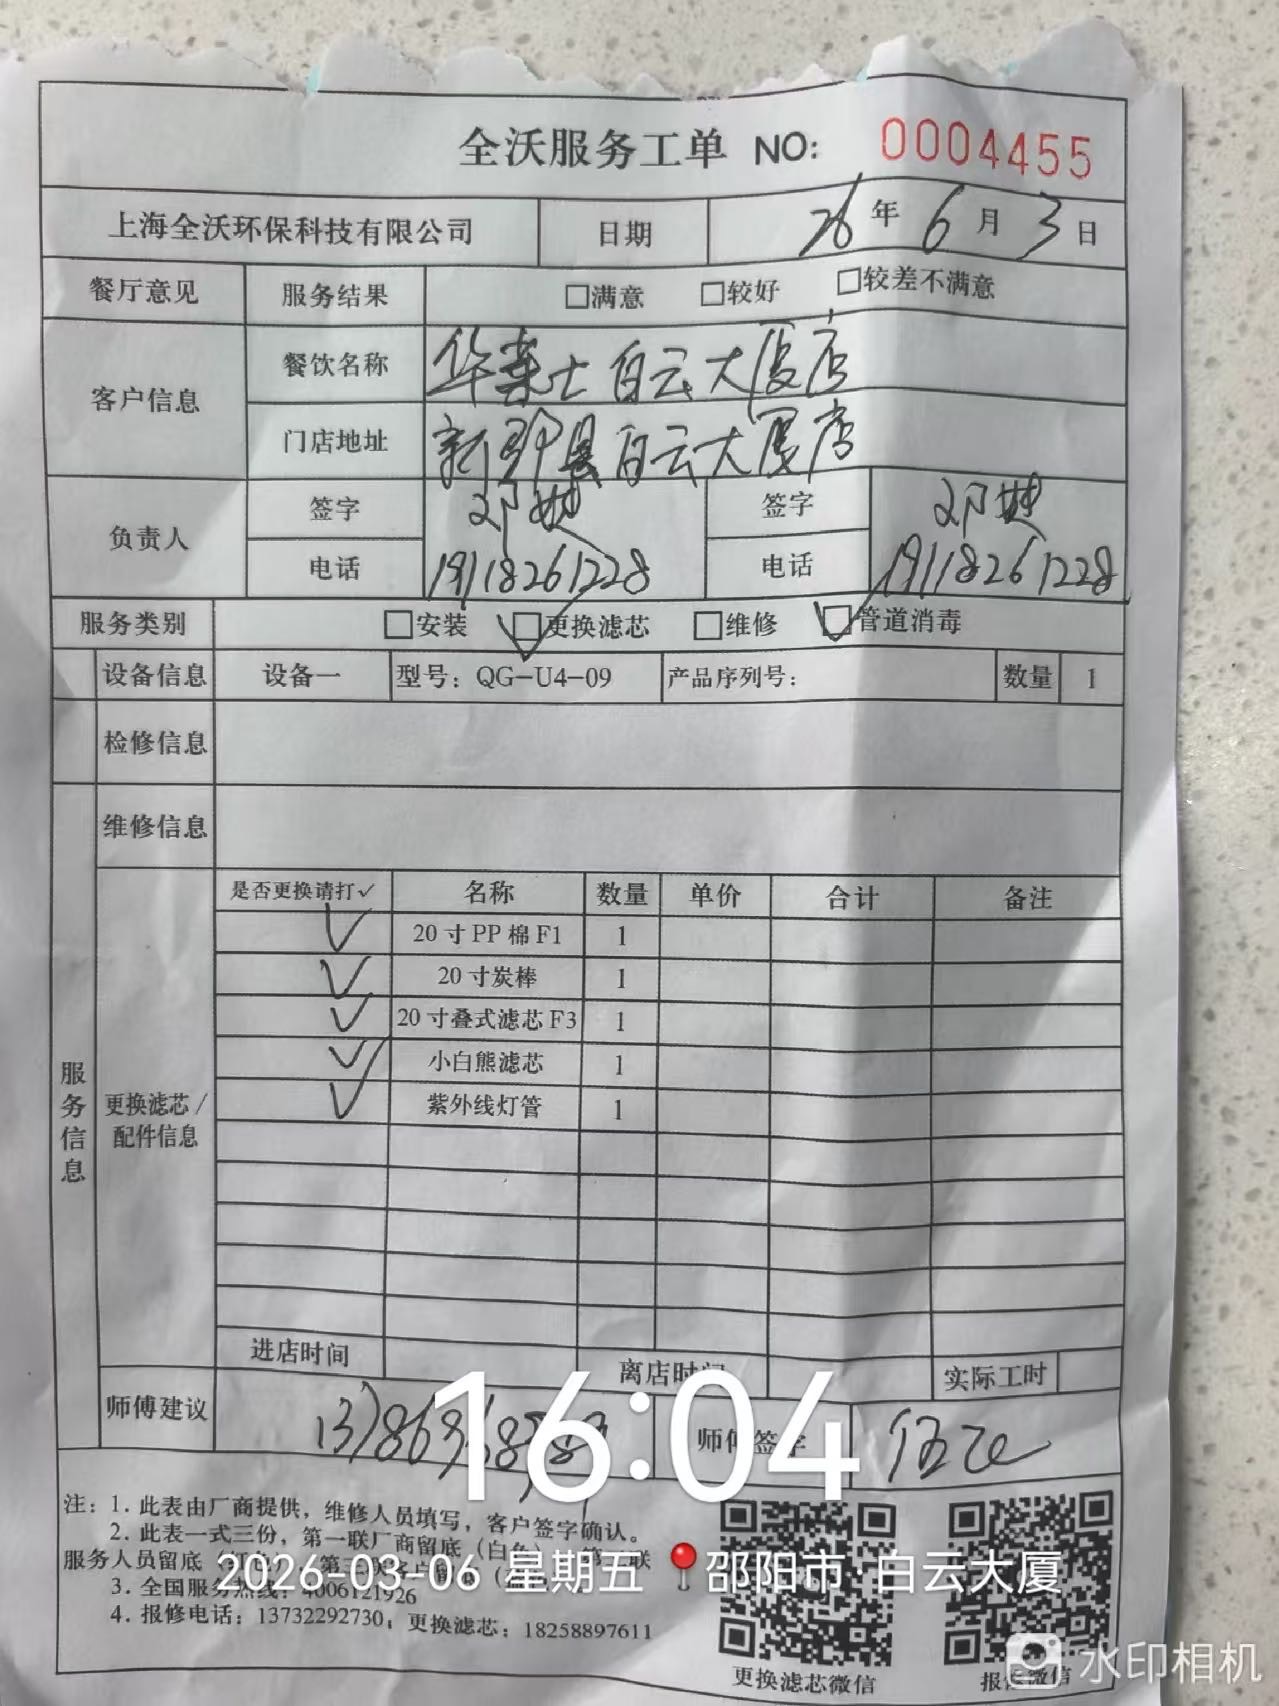 全沃服务工单 NO: 0004455
上海全沃环保科技有限公司 日期 26年6月3日
餐厅意见 服务结果 □满意 □较好 □较差不满意
客户信息 餐饮名称 华莱士白云大厦店
门店地址 新邵县白云大厦店
负责人 签字 邓 签字 邓
电话 19118261228 电话 19118261228
服务类别 □安装 ☑更换滤芯 □维修 ☑管道消毒
设备信息 设备一 型号：QG-U4-09 产品序列号： 数量 1
检修信息
维修信息
服务信息
更换滤芯/
配件信息
是否更换请打✓ 名称 数量 单价 合计 备注
✓ 20寸PP棉F1 1
✓ 20寸炭棒 1
✓ 20寸叠式滤芯F3 1
✓ 小白熊滤芯 1
✓ 紫外线灯管 1
进店时间 离店时间 实际工时
师傅建议 师傅签字 伍
16:04
注：1. 此表由厂商提供，维修人员填写，客户签字确认。
2. 此表一式三份，第一联厂商留底（白色）
服务人员留底
3. 全国服务热线：4006121926
4. 报修电话：13732292730；更换滤芯：18258897611
2026-03-06 星期五 邵阳市·白云大厦
更换滤芯微信 报修微信
水印相机